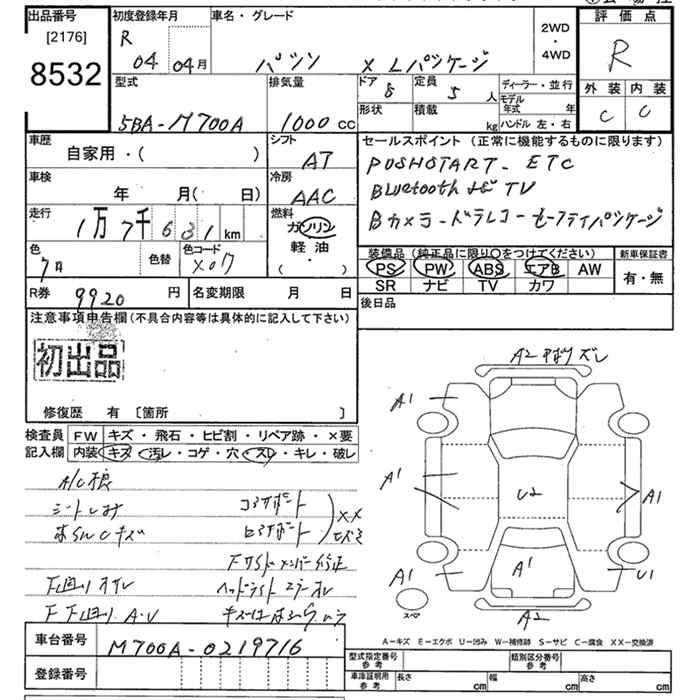 出品番号
[2176]
8532
初度登録年月
R 04 04月
車名・グレード
パッソ X Lパッケージ
2WD
・
4WD
評価点
R
外装 内装
C C
型式
5BA-M700A
排気量
1000 cc
ドア 5
定員 5 人
形状
積載 kg
ディーラー・並行
モデル年式 年
ハンドル 左・右
車歴
自家用・( )
シフト
AT
セールスポイント (正常に機能するものに限ります)
PUSHSTART. ETC
Bluetooth ナビ TV
Bカメラ-ドラレコ-セーフティパッケージ
車検
年 月( 日)
冷房
AAC
走行
1万7千631km
燃料
ガソリン
軽 油
( ・ )
色
色替
色コード
X07
装備品 (純正品に限り○をつけてください)
PS PW ABS エアB AW
SR ナビ TV カワ
新車保証書
有・無
R券 9920 円
名変期限 月 日
後日品
注意事項申告欄 (不具合内容等は具体的に記入して下さい)
初出品
修復歴 有 〔箇所 〕
検査員
記入欄
FW キズ・飛石・ヒビ割・リペア跡・×要
内装 キズ・汚レ・コゲ・穴・スレ・キレ・破レ
シートしみ
A2
ズレ
A1
A1
A1
U2
A1
A1
U1
A2
スペア
A-キズ E-エクボ U-凹み W-補修跡 S-サビ C-腐食 XX-交換済
車台番号
M700A-0219716
登録番号
型式指定番号
参考
類別区分番号
参考
車庫証明用
参考
長さ cm
幅 cm
高さ cm